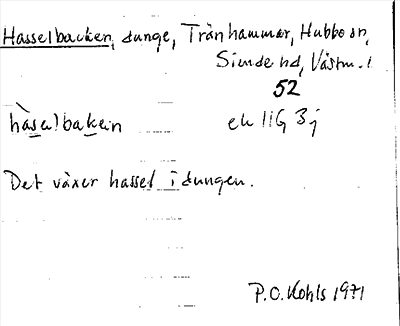 Hasselbacken, dunge, Trånhammar, Hubbo sn,
Siende hd, Västm. l
52
hàsəlbakən ek 11G 3j
Det växer hassel i dungen.
P.O. Kohls 1971